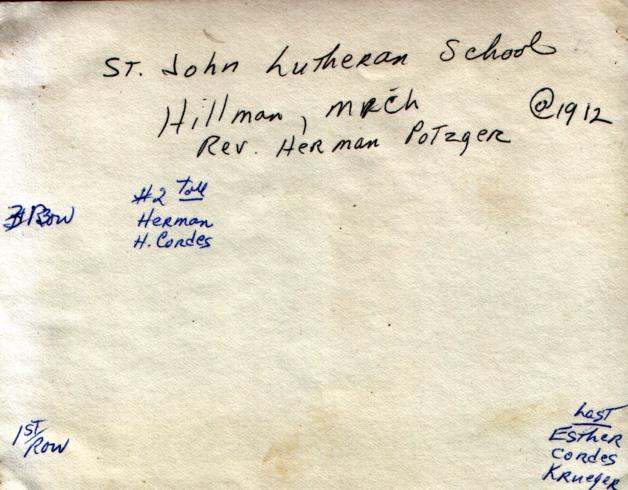 St. John Lutheran School
Hillman, Mich @1912
Rev. Herman Potzger
#2 Tall
Row Herman
H. Cordes
1ST Last
Row Esther
Cordes
Krueger